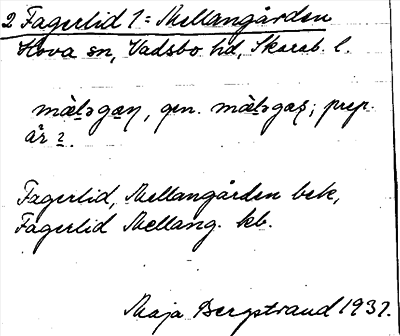 2 Fagerlid 1 = Mellangården
Hova sn, Vadsbo hd, Skarab. l.
gen. prep.
är 2.
Fagerlid, Mellangården bek,
Fagerlid Mellang. kb.
Maja Bergstrand 1937.